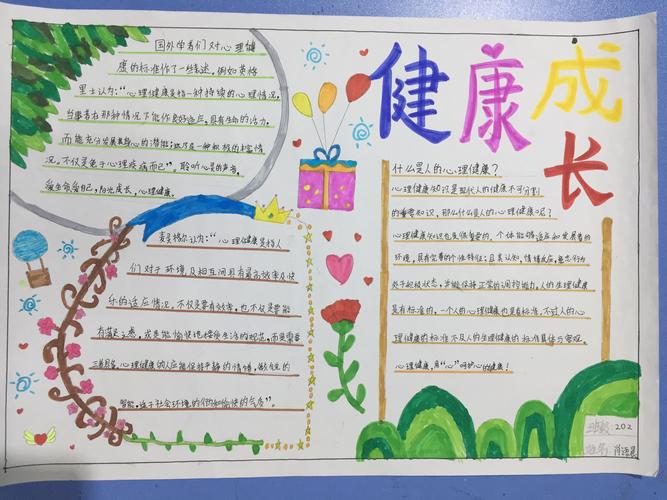 健康成长
国外学者们对心理健
康的标准作了一些表述,例如英格
里士认为:“心理健康是指一种持续的心理情况,
当事者在那种情况下能作良好适应,具有生命的活力,
而能充分发展其身心的潜能;这乃是一种积极的丰富情
况。不仅是免于心理疾病而已”。聆听心灵的声音,
爱生命爱自己,阳光成长,心理健康。
麦灵格尔认为:“心理健康是指人
们对于环境及相互间具有最高效率及快
乐的适应情况。不仅是要有效率,也不仅是要能
有满足之感,或是能愉快地接受生活的规范,而是需要
三者具备。心理健康的人应能保持平静的情绪,敏锐的
智能,适于社会环境的行为和愉快的气质”。
什么是人的心理健康?
心理健康知识是现代人的健康不可分割
的重要知识,那么什么是人的心理健康呢?
心理健康知识也是很重要的,个体能够适应和发展着的
环境,具有完善的个性特征;且其认知,情绪反应,意志行为
处于积极状态,并能保持正常的调控能力,人的生理健康
是有标准的,一个人的心理健康也是有标准,不过人的心
理健康的标准不及人的生理健康的标准具体与客观。
心理健康,用“心”呵护心的健康!
班级:202
姓名:肖